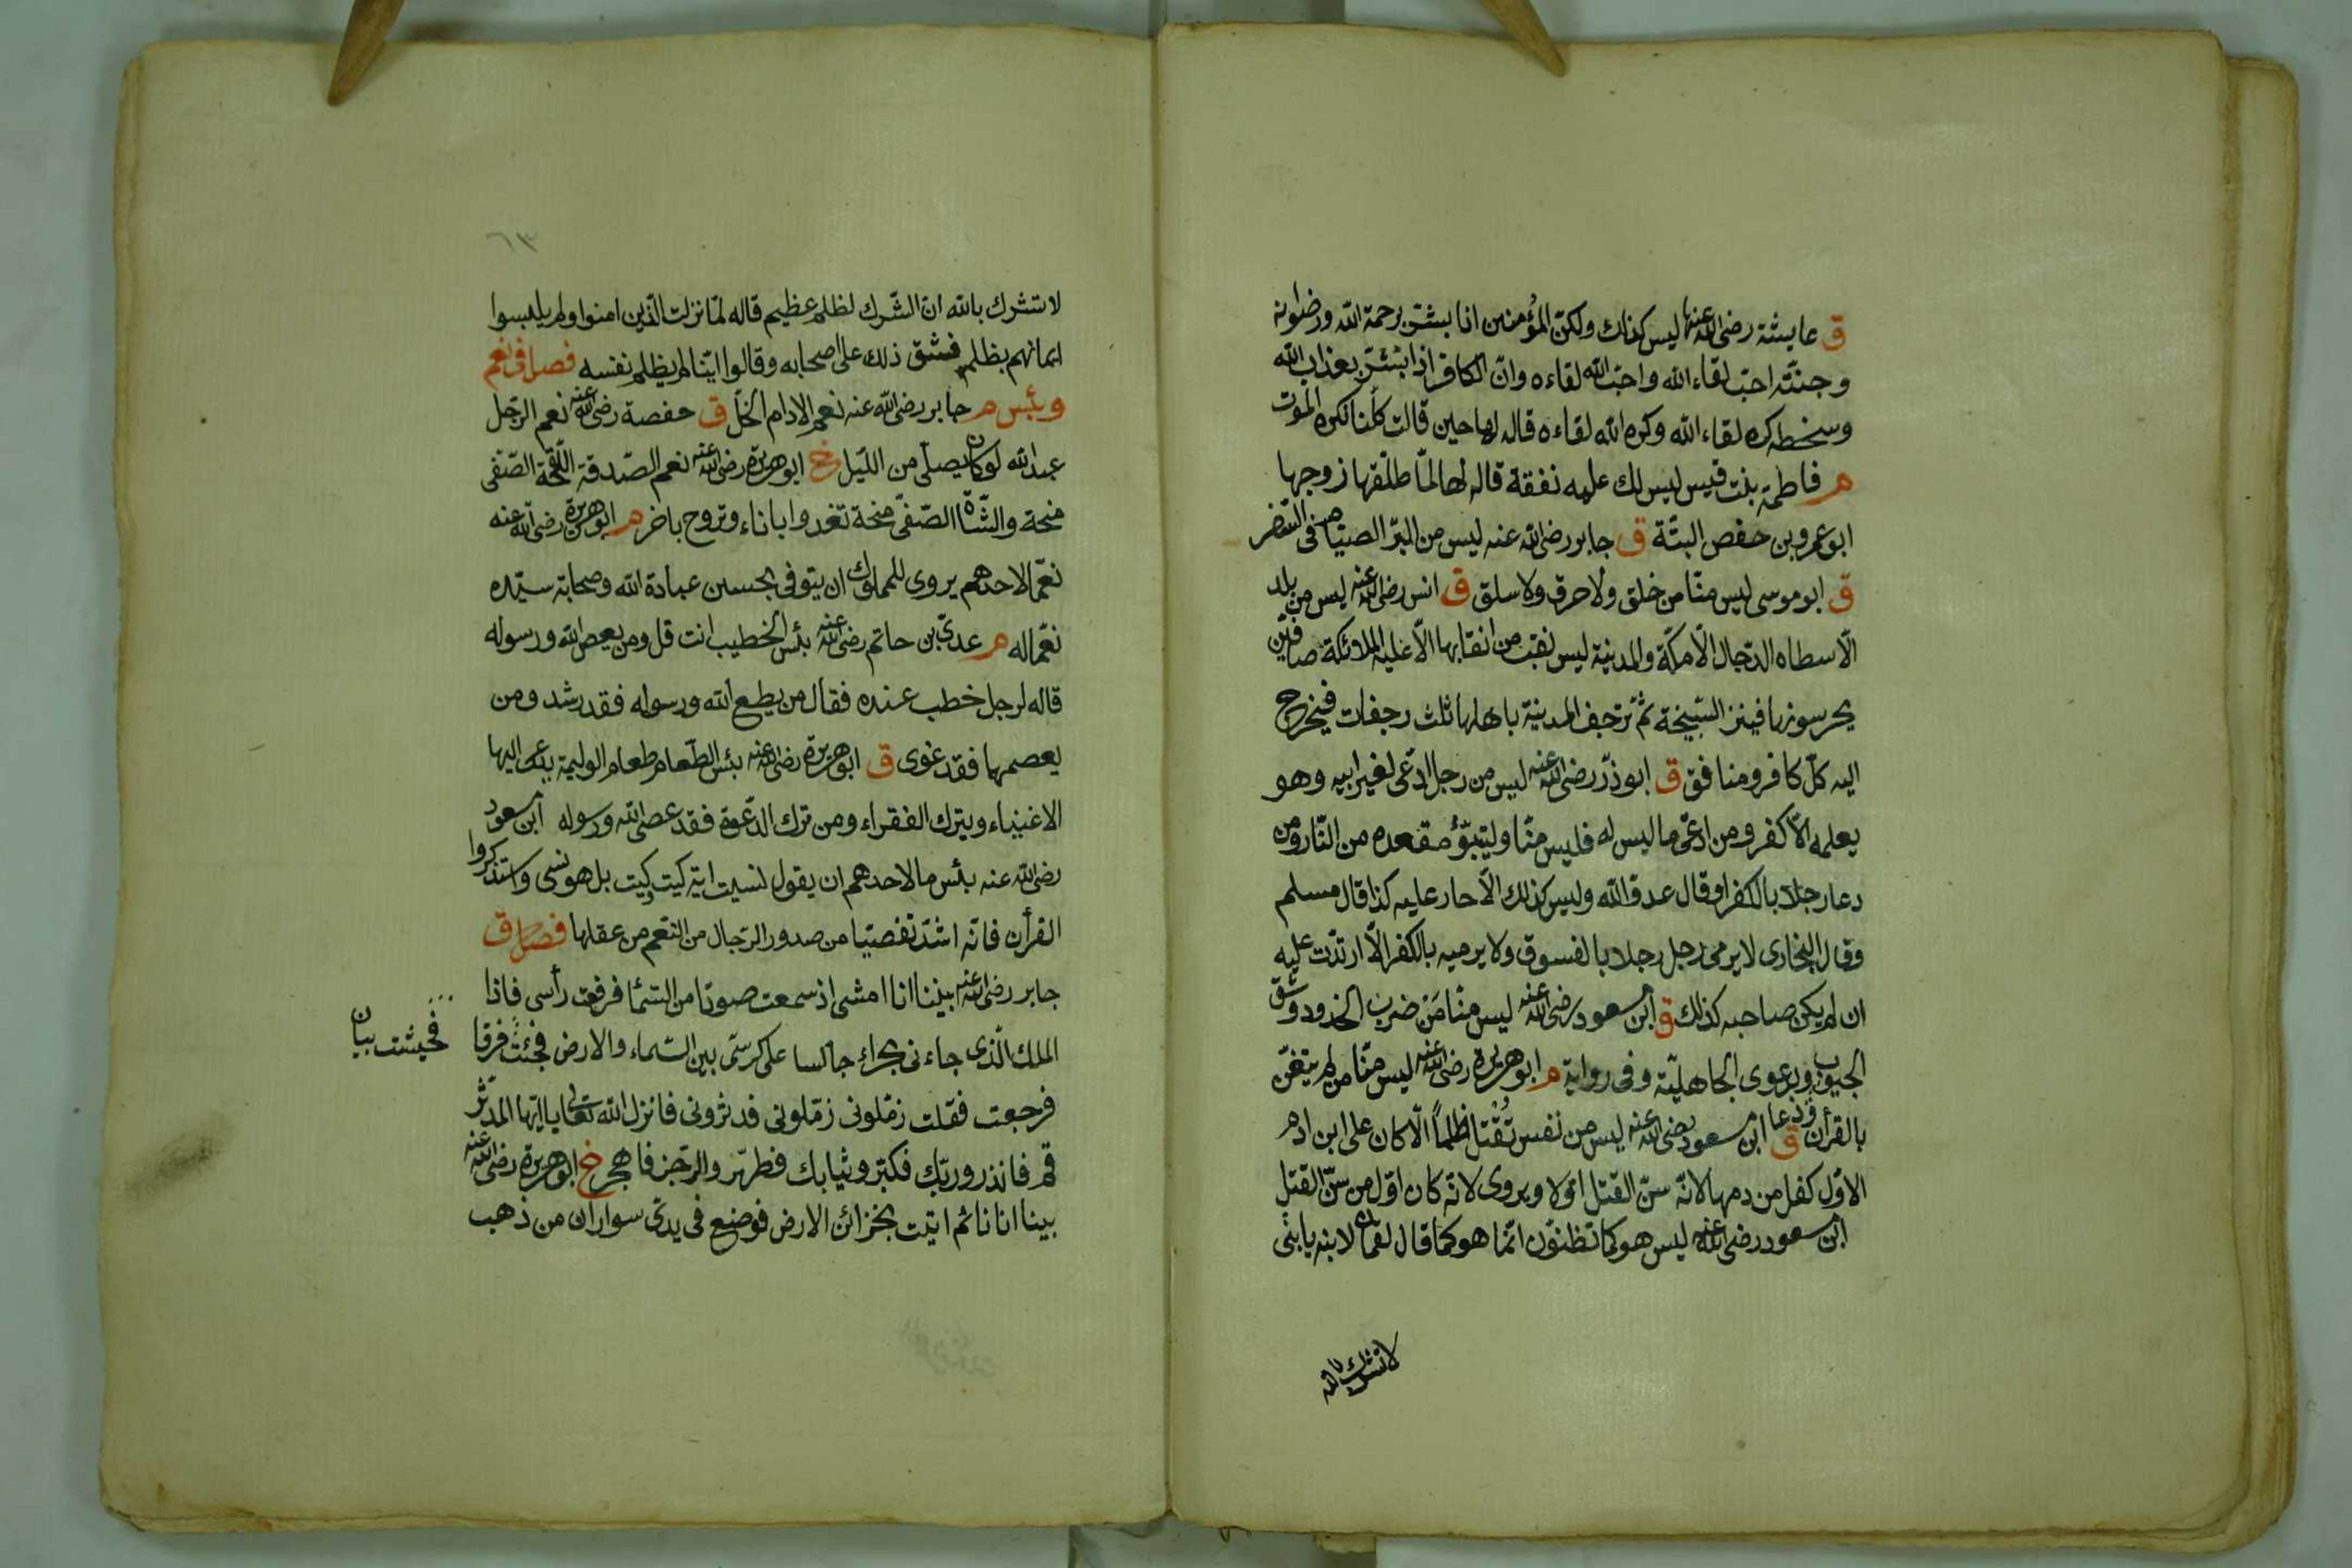 ق عايشة رضى الله عنها ليس كذلك ولكن المؤمنين اذا بشر برحمة الله ورضوانه
وجنته احب لقاء الله واحب الله لقاءه وان الكافر اذا بشر بعذاب الله
وسخطه كره لقاء الله وكره الله لقاءه قاله لها حين قالت كلنا نكره الموت
م فاطمة بنت قيس ليس لك عليه نفقة قاله لها لما طلقها زوجها
ابو عمرو بن حفص البتة ق جابر رضى الله عنه ليس من البر الصيام فى السفر
ق ابو موسى ليس منا من خلق ولا حرق ولا سلق ق انس رضى الله عنه ليس من بلد
الا سطاه الدجال الا مكة والمدينة ليس نقب من انقابها الا عليه الملائكة صافين
يحرسونها فينزل السبخة ثم ترجف المدينة باهلها ثلث رجفات فيخرج
اليه كل كافر ومنافق ق ابو ذر رضى الله عنه ليس من رجل ادعى لغير ابيه وهو
يعلمه الا كفر ومن ادعى ما ليس له فليس منا وليتبؤ مقعده من النار ومن
دعا رجلا بالكفر او قال عدو الله وليس كذلك الا حار عليه كذا قال مسلم
وقال البخارى لا يرمى رجل رجلا بالفسوق ولا يرميه بالكفر الا ارتدت عليه
ان لم يكن صاحبه كذلك ق ابن مسعود رضى الله عنه ليس منا من ضرب الخدود وشق
الجيوب ودعوى الجاهلية وفى رواية م ابو هريرة رضى الله عنه ليس منا من لم يتغن
بالقرأن ودعا ق ابن مسعود رضى الله عنه ليس من نفس تقتل ظلما الا كان على ابن ادم
الاول كفل من دمها لانه سن القتل اولا ويروى لانه كان اول من سن القتل
ابن مسعود رضى الله عنه ليس هو كما تظنون انما هو كما قال لقمان لابنه يا بنى
لا تشرك بالله
٦٣
لا تشرك بالله ان الشرك لظلم عظيم قاله لما نزلت الذين امنوا ولم يلبسوا
ايمانهم بظلم فشق ذلك على اصحابه وقالوا اينا لم يظلم نفسه فصل فى نعم
وبئس م جابر رضى الله عنه نعم الادام الخل ق حفصة رضى الله عنه نعم الرجل
عبد الله لو كان يصلى من الليل خ ابو هريرة رضى الله عنه نعم الصدقة اللقحة الصفى
منحة والشاة الصفى منحة تغدوا باناء وتروح باخر م ابو هريرة رضى الله عنه
نعما لاحدهم يروى للمملوك ان يتوفى بحسين عبادة الله وصحابة سيده
نعما له م عدى بن حاتم رضى الله عنه بئس الخطيب انت قل ومن يعص الله ورسوله
قاله لرجل خطب عنده فقال من يطع الله ورسوله فقد رشد ومن
يعصمها فقد غوى ق ابو هريرة رضى الله عنه بئس الطعام طعام الوليمة يدعى اليها
الاغنياء ويترك الفقراء ومن ترك الدعوة فقد عصى الله ورسوله ابن مسعود
رضى الله عنه بئس ما لاحدهم ان يقول نسيت اية كيت وكيت بل هو نسى واستذكروا
القرأن فانه اشد تفصيا من صدور الرجال من النعم من عقلها فصل ق
جابر رضى الله عنه بيننا انا امشى اذ سمعت صوتا من السماء فرفعت رأسى فاذا
الملك الذى جاءنى بحراء جالسا على كرسى بين السماء والارض فجئثت فرقا
فجيثت بيان
فرجعت فقلت زملونى زملونى فدثرونى فانزل الله تعالى يا ايها المدثر
قم فانذر وربك فكبر وثيابك فطهر والرجز فاهجر خ ابو هريرة رضى الله عنه
بينا انا نائم اتيت بخزائن الارض فوضع فى يدى سواران من ذهب